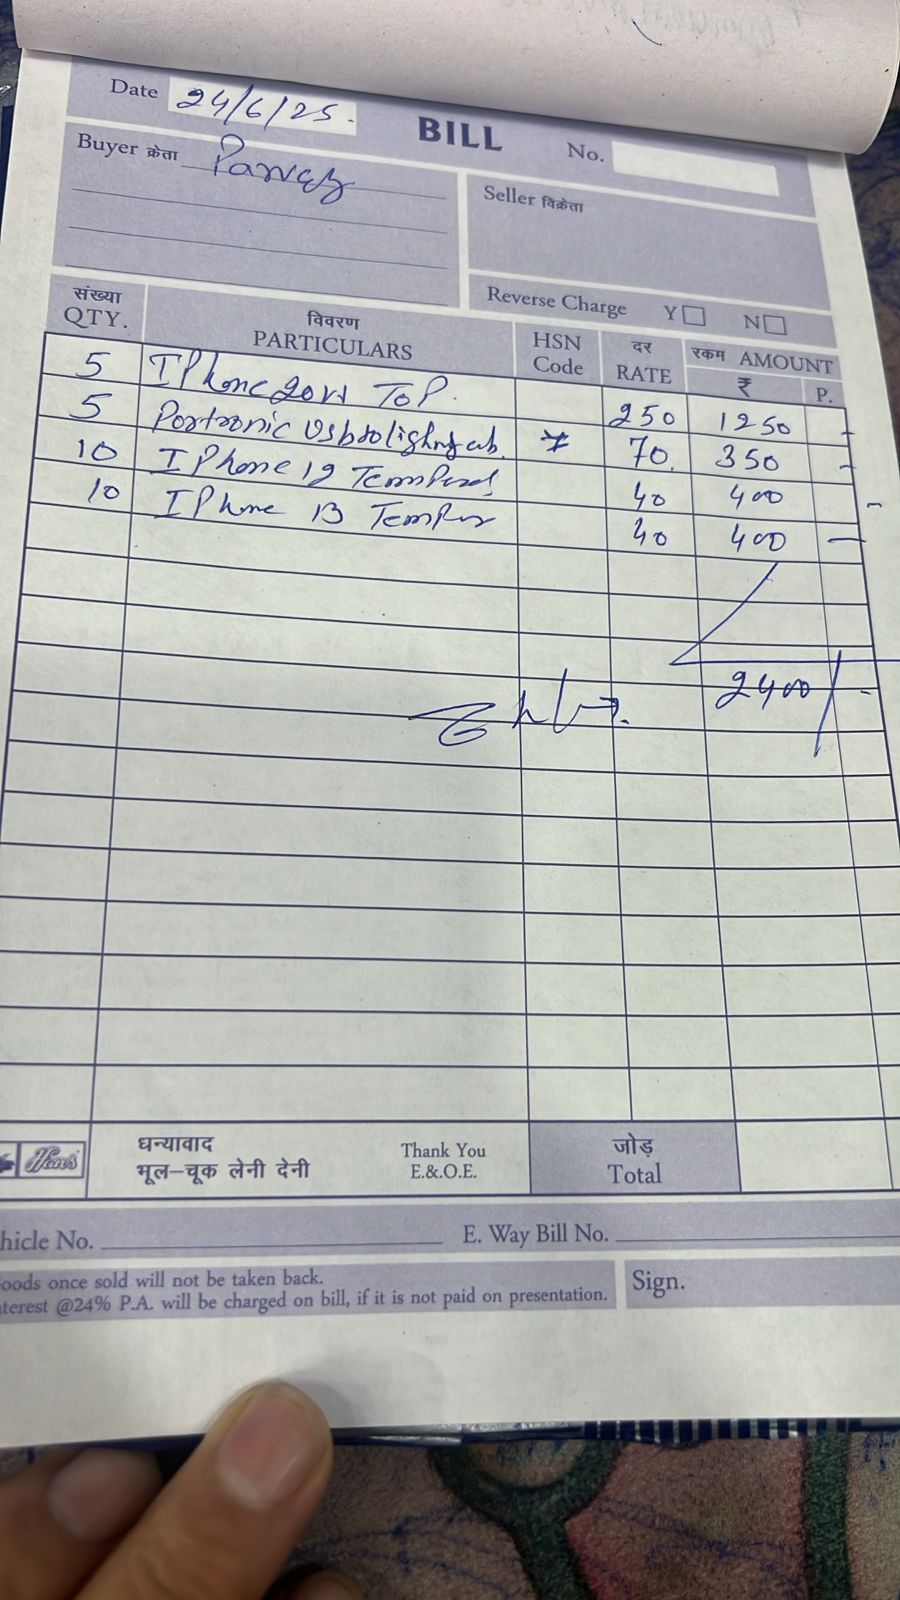 Date 24/6/25.
BILL
No.
Buyer क्रेता Parvez
Seller विक्रेता
Reverse Charge Y N
संख्या QTY. विवरण PARTICULARS HSN Code दर RATE रकम AMOUNT ₹ P.
5 IPhone 20W ToP. 250 1250 -
5 Portronic 70. 350 -
10 IPhone 12 40 400 -
10 IPhone 13 40 400 -
2400/-
Hans
धन्यावाद
भूल-चूक लेनी देनी
Thank You
E.&.O.E.
जोड़
Total
hicle No.
E. Way Bill No.
oods once sold will not be taken back.
terest @24% P.A. will be charged on bill, if it is not paid on presentation.
Sign.